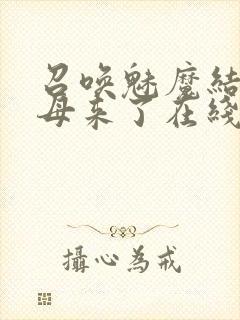 召唤魅魔结
母来了在綫
攝心為戒